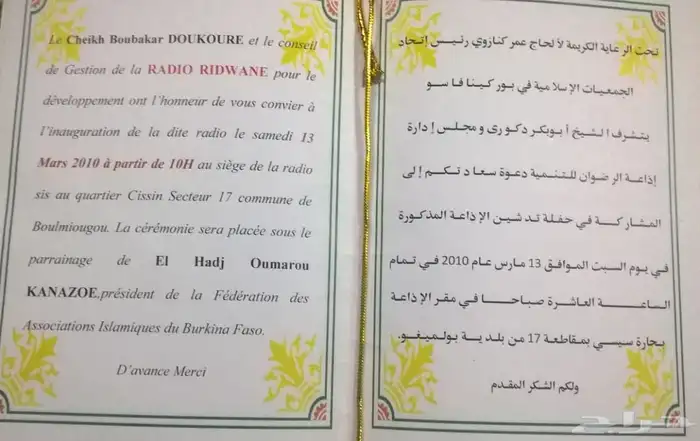 Le Cheikh Boubakar DOUKOURE et le conseil
de Gestion de la RADIO RIDWANE pour le
développement ont l'honneur de vous convier à
l'inauguration de la dite radio le samedi 13
Mars 2010 à partir de 10H au siège de la radio
sis au quartier Cissin Secteur 17 commune de
Boulmiougou. La cérémonie sera placée sous le
parrainage de El Hadj Oumarou
KANAZOE,président de la Fédération des
Associations Islamiques du Burkina Faso.
D'avance Merci
تحت الرعاية الكريمة لألحاج عمر كنازوي رئيس إتحاد
الجمعيات الإسلامية في بوركينا فاسو
يتشرف الشيخ أبوبكر دكوري و مجلس إدارة
إذاعة الرضوان للتنمية دعوة سعادتكم إلى
المشاركة في حفلة تدشين الإذاعة المذكورة
في يوم السبت الموافق 13 مارس عام 2010 في تمام
الساعة العاشرة صباحا في مقر الإذاعة
بحارة سيسي بمقاطعة 17 من بلدية بولميغو.
ولكم الشكر المقدم
حراج